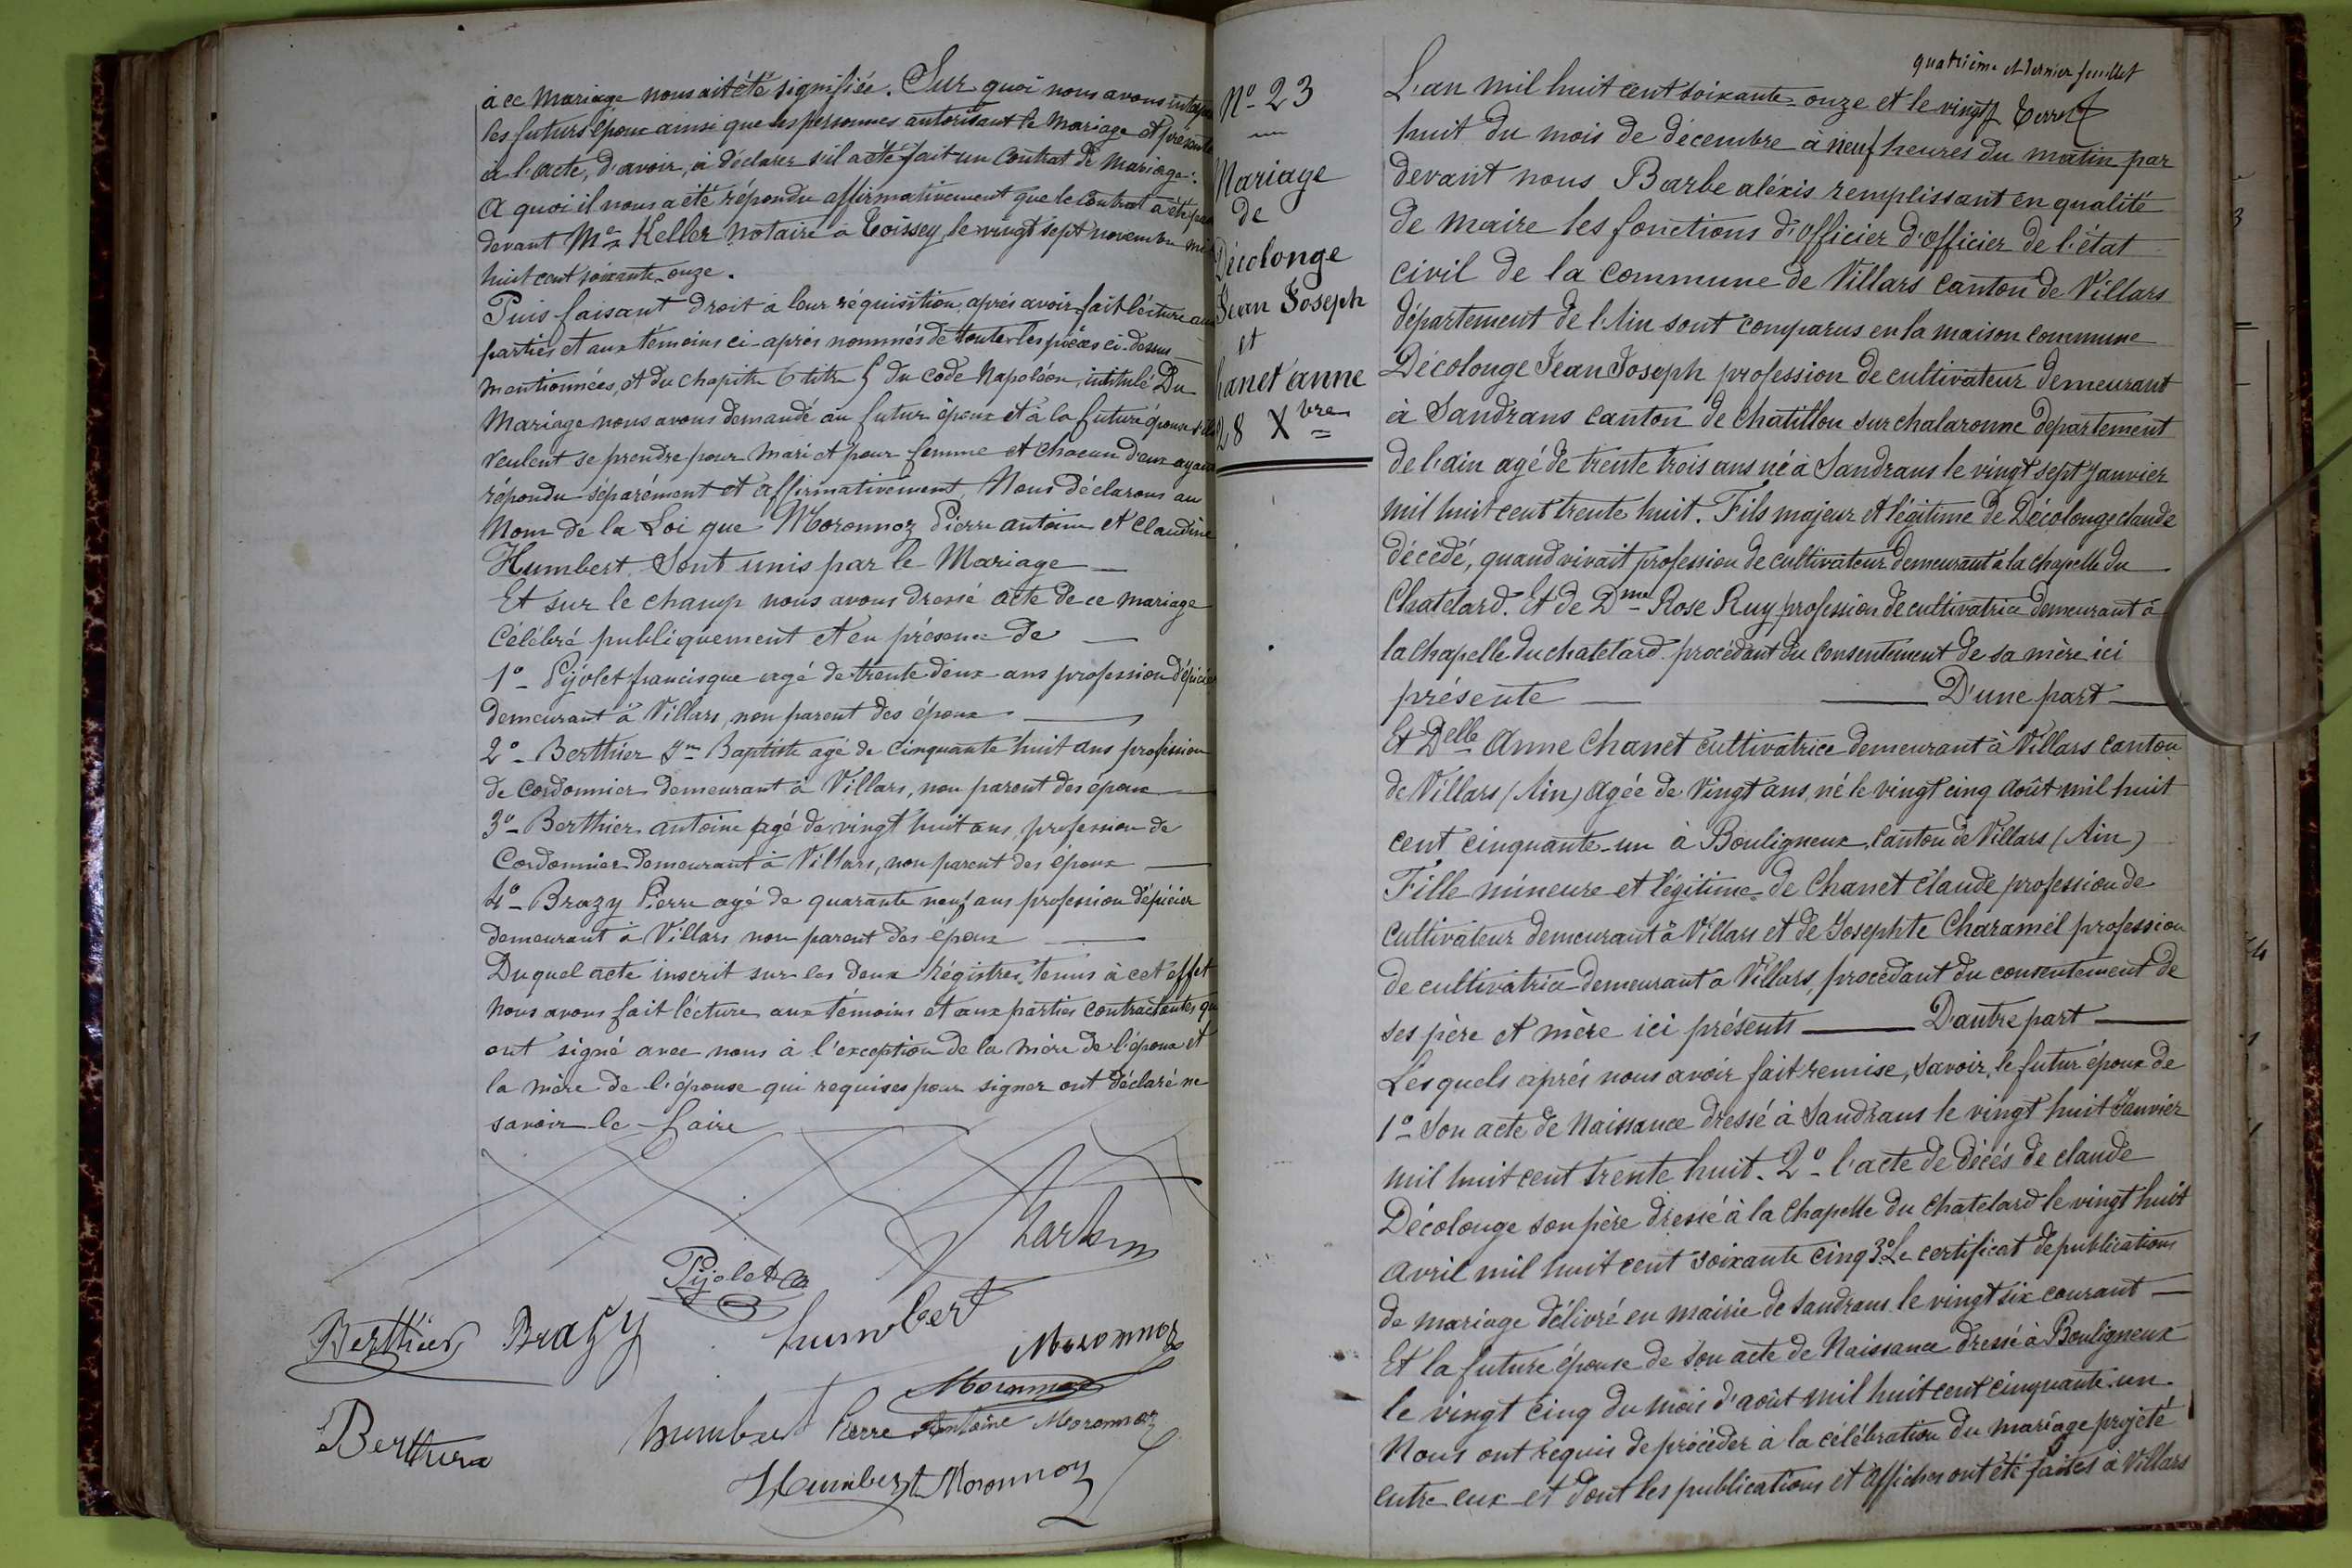 à ce Mariage nous ait été signifiée. Sur quoi nous avons
les futurs époux ainsi que les personnes autorisant le Mariage et
à l'acte, d'avoir, à déclarer s'il a été fait un Contrat de Mariage.
A quoi il nous a été répondu affirmativement que le Contrat a été
devant Me Keller notaire à Toissey le vingt sept novembre
huit cent soixante-onze.
Puis faisant droit à leur réquisition, après avoir fait lécture
parties et aux témoins ci-après nommés de toutes les pièces ci-dessus
mentionnées, et du chapitre 6 titre 5 du Code Napoléon, intitulé Du
Mariage nous avons demandé au futur époux et à la future épouse
veulent se prendre pour mari et pour femme et chacun d'eux
répondu séparément et affirmativement, Nous déclarons au
Nom de la Loi que Moronnoz Pierre antoine et Claudine
Humbert. Sont unis par le Mariage
Et sur le champ nous avons dressé acte de ce mariage
Célébré publiquement et en présence de
1º - Pijolet francisque agé de trente deux ans profession d'épicier
demeurant à Villars, non parent des époux
2º - Berthier Jn Baptiste agé de cinquante huit ans profession
de cordonnier demeurant à Villars, non parent des époux
3º - Berthier antoine agé de vingt huit ans profession de
Cordonnier demeurant à Villars, non parent des époux
4º - Brazy Pierre agé de quarante neuf ans profession d'épicier
demeurant à Villars non parent des époux
Duquel acte inscrit sur les deux Régistres tenus à cet effet
Nous avons fait lécture aux témoins et aux parties contractantes
ont signé avec nous à l'exception de la mère de l'époux et
la mère de l'épouse qui requises pour signer ont déclaré ne
savoir le faire
Pijolet
Berthier Brazy humbert
Moronnoz
Moronnoz
humbert Pierre Antoine Moronnoz
Humbert Moronnoz
Nº 23
Mariage
de
Décolonge
Jean Joseph
et
Chanet anne
28 Xbre
quatrième et dernier feuillet
L'an mil huit cent soixante-onze et le vingt
huit du mois de décembre à neuf heures du matin par
devant nous Barbe aléxis remplissant en qualité
de maire les fonctions d'officier d'officier de l'état
civil de la commune de Villars canton de Villars
département de l'Ain sont comparus en la maison commune
Décolonge Jean Joseph profession de cultivateur demeurant
à Sandrans canton de Chatillon sur chalaronne département
de l'ain agé de trente trois ans né à Sandrans le vingt sept Janvier
mil huit cent trente huit. Fils majeur et légitime de Décolonge claude
décédé, quand vivait profession de cultivateur demeurant à la chapelle du
Chatelard. Et de Dme Rose Ruy profession de cultivatrice demeurant à
la Chapelle du chatelard procédant du consentement de sa mère ici
présente D'une part
Et Delle Anne Chanet cultivatrice demeurant à Villars canton
de Villars (Ain) agée de vingt ans, né le vingt cinq Août mil huit
cent cinquante-un à Bouligneux, Canton de Villars (Ain)
Fille mineure et légitime de Chanet claude profession de
cultivateur demeurant à Villars et de Josephte Charamel profession
de cultivatrice demeurant à Villars, procédant du consentement de
ses père et mère ici présents D'autre part
Lesquels après nous avoir fait remise, savoir, le futur époux de
1º - Son acte de Naissance dressé à Sandrans le vingt huit Janvier
mil huit cent trente huit. 2º - l'acte de décés de claude
Décolonge son père dressé à la Chapelle du Chatelard le vingt huit
Avril mil huit cent soixante cinq 3º. Le certificat de publications
de mariage délivré en mairie de Sandrans le vingt six courant
Et la future épouse de Son acte de Naissance dressé à Bouligneux
le vingt cinq du mois d'août mil huit cent cinquante-un.
Nous ont requis de procéder à la célébration du mariage projeté
entre eux et dont les publications et affiches ont été faites à Villars